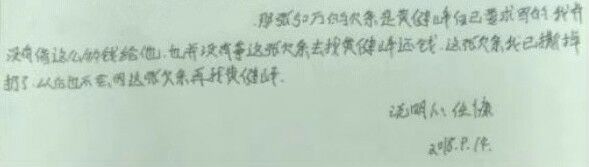 那张50万的欠条是黄健峰自己要求写的,我并
没有借这么的钱给他,也并没有拿这张欠条去找黄健峰还钱.这张欠条我已撕掉
扔了.从后也不会因这张欠条再找黄健峰.
说明人:任
2018.9.14.